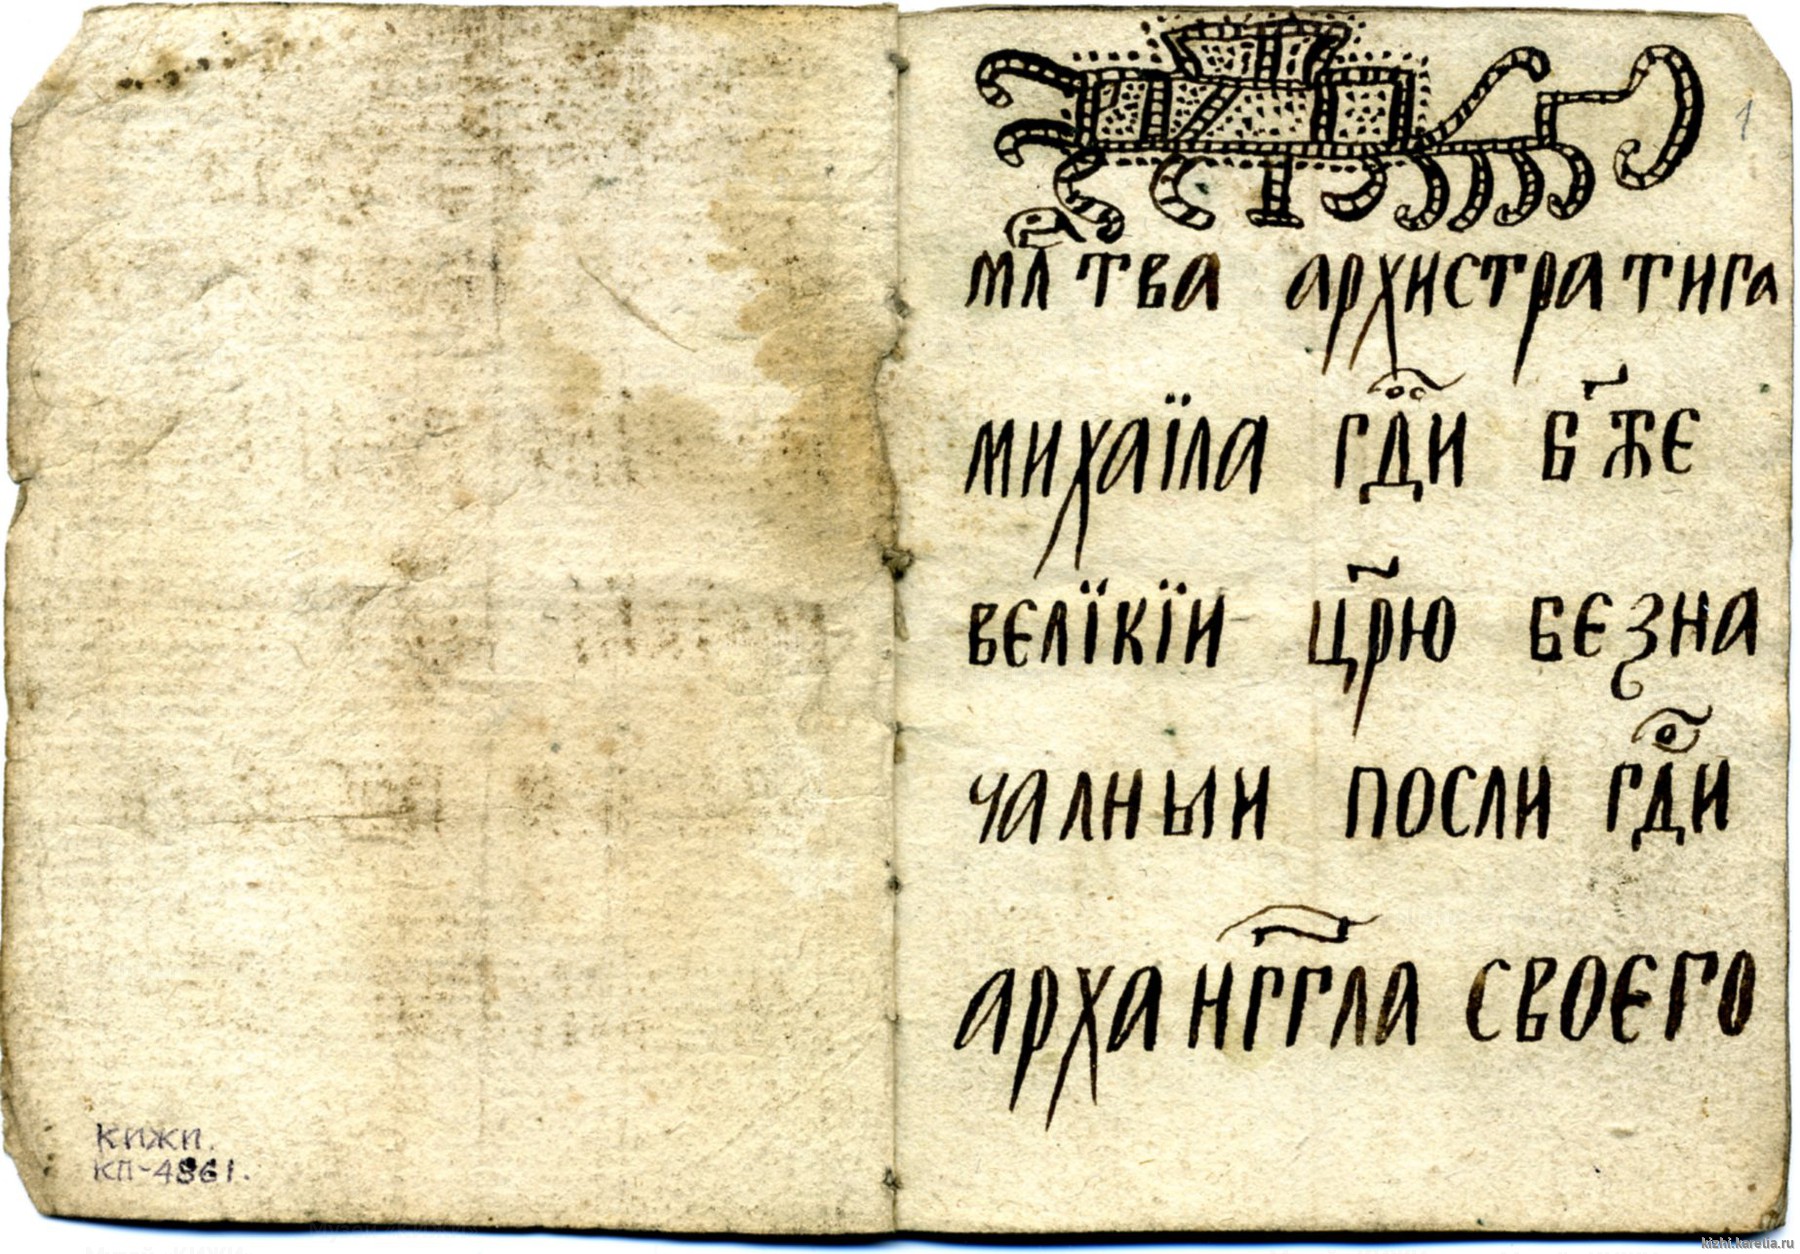 кижи.
КП-4861.
1
мл҃тва архистратига
михаїла гдⷭ҇и бж҃е
велїкїи цр҃ю безна
чалныи посли гдⷭ҇и
арханг҃гла своего
kizhi.karelia.ru